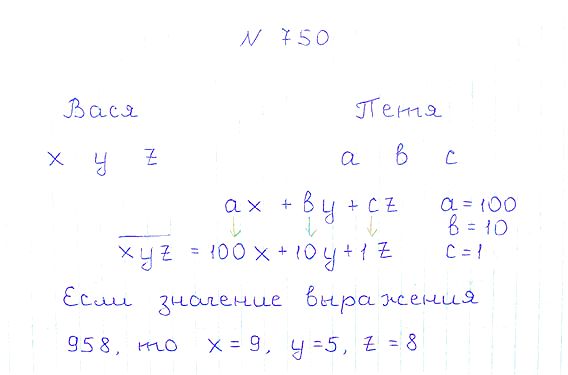 N 750
Вася Петя
x y z a b c
ax + by + cz a = 100
b = 10
xyz = 100x + 10y + 1z c = 1
Если значение выражения
958, то x = 9, y = 5, z = 8